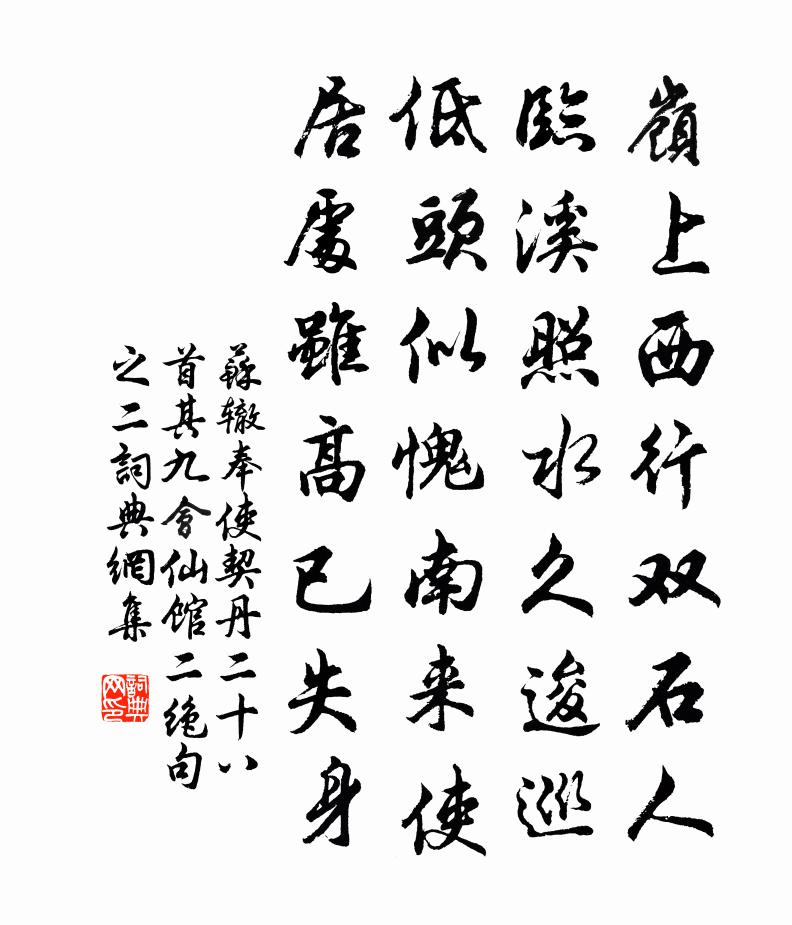 嶺上西行双石人
臨溪照水久逡巡
低頭似愧南来使
居處雖高已失身
蘇辙奉使契丹二十八
首其九會仙館二绝句
之二詞典網集
詞典网印